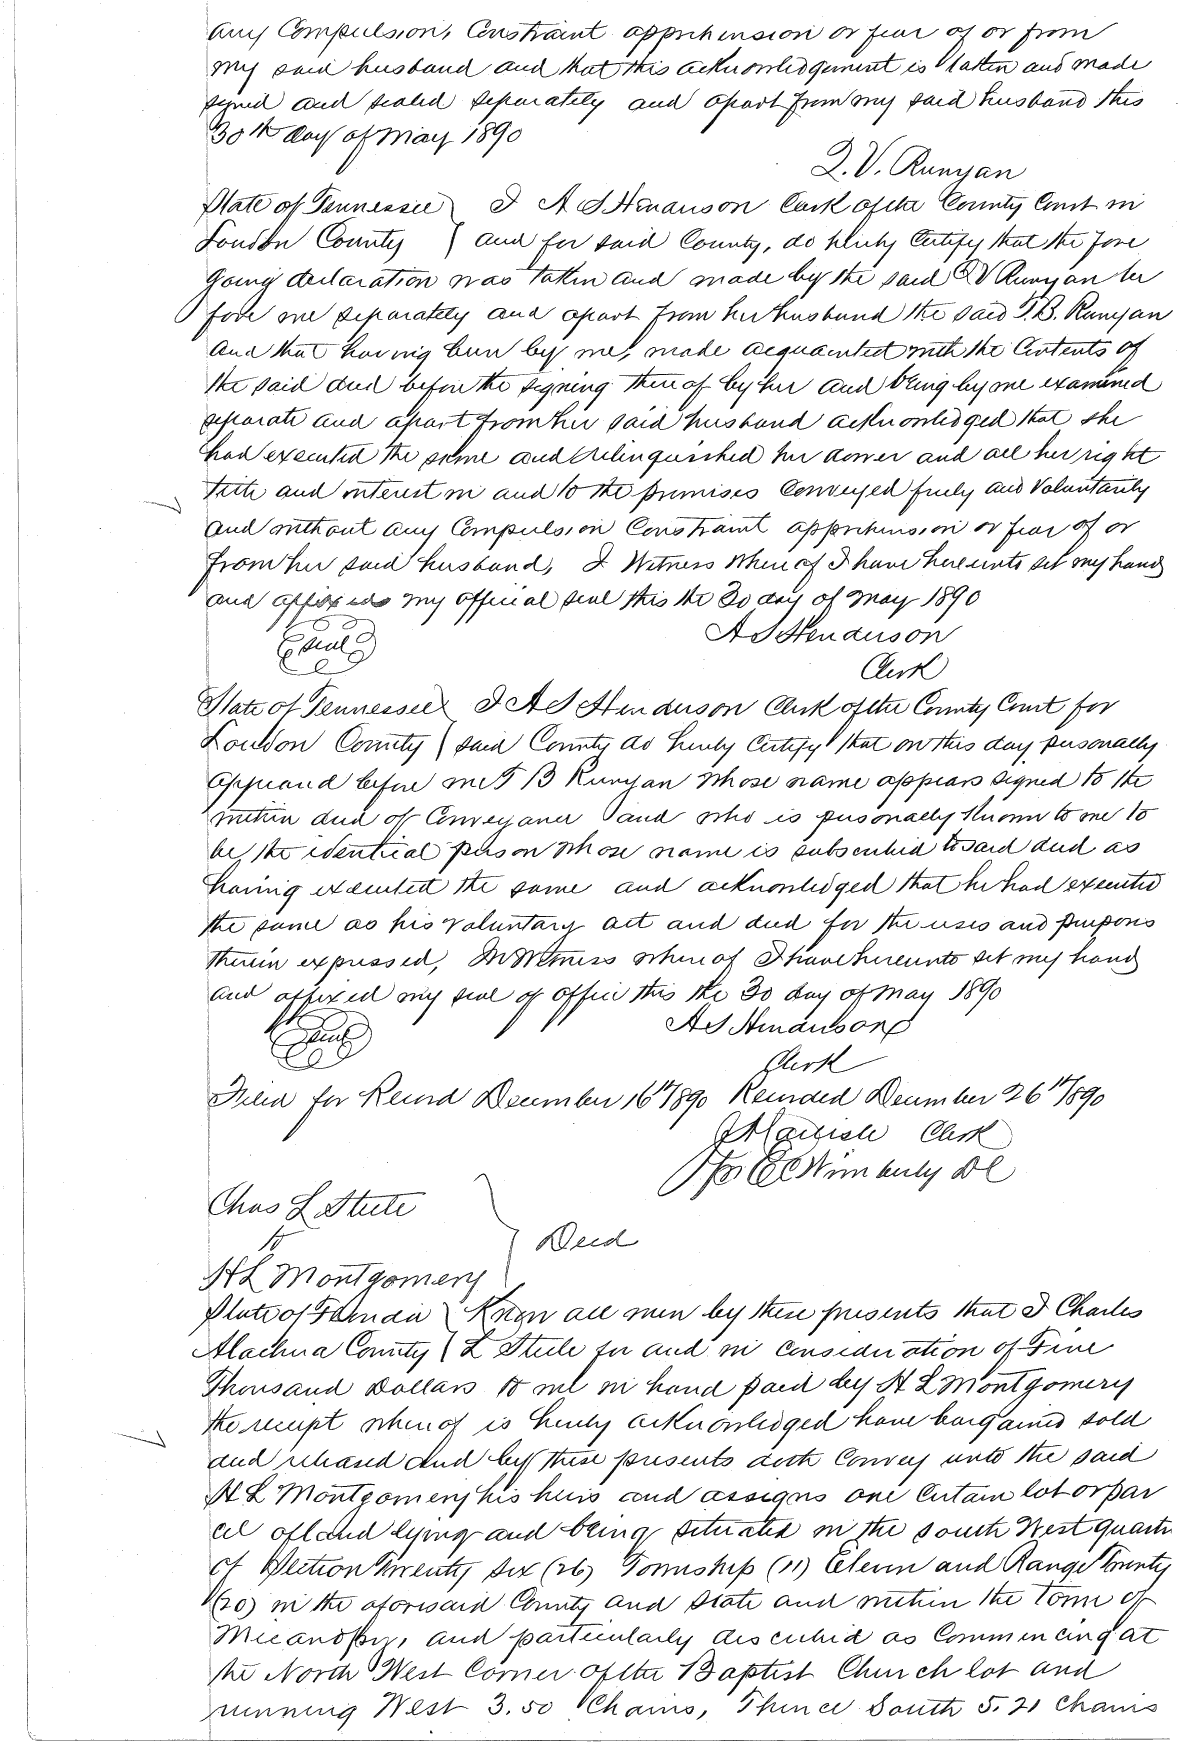 any Compulsion, Constraint apprehension or fear of or from
my said husband and that this acknowledgement is taken and made
signed and sealed separately and apart from my said husband this
30th day of May 1890
Q. V. Runyan
State of Tennessee } I A S Henderson Clerk of the County Court in
Loudon County } and for said County, do hereby Certify that the fore
going declaration was taken and made by the said Q V Runyan be
fore me separately and apart from her husband the said T. B. Runyan
and that having been by me, made acquainted with the Contents of
the said deed before the signing there of by her and being by me examined
separate and apart from her said husband acknowledged that she
had executed the same and relinquished her dower and all her right
title and interest in and to the premises Conveyed freely and Voluntarily
and without any Compulsion Constraint apprehension or fear of or
from her said husband, I Witness where of I have here unto set my hand
and affixed my official seal this the 30 day of May 1890
Seal A S Henderson
Clerk
State of Tennessee } I A S Henderson Clerk of the County Court for
Loudon County } said County do hereby Certify that on this day personally
appeared before me T B Runyan whose name appears signed to the
within deed of Conveyance and who is personally known to me to
be the identical person whose name is subscribed to said deed as
having executed the same and acknowledged that he had executed
the same as his voluntary act and deed for the uses and purposes
therein expressed, In Witness where of I have hereunto set my hand
and affixed my seal of office this the 30 day of May 1890
Seal A S Henderson
Clerk
Filed for Record December 16th/890 Recorded December 26th/890
Clerk
for Wimberly DC
Chas L Steele
to } Deed
H L Montgomery
State of Florida } Know all men by these presents that I Charles
Alachua County } L Steele for and in consideration of Five
Thousand Dollars to me in hand paid by H L Montgomery
the receipt where of is hereby acknowledged have bargained sold
and released and by these presents doth Convey unto the said
H L Montgomery his heirs and assigns one certain lot or par
cel of land lying and being situated in the South West quarter
of Section Twenty six (26) Township (11) Eleven and Range Twenty
(20) in the aforesaid County and State and within the Town of
Micanopy, and particularly described as Commencing at
the North West Corner of the Baptist Church lot and
running West 3.50 Chains, Thence South 5.21 Chains